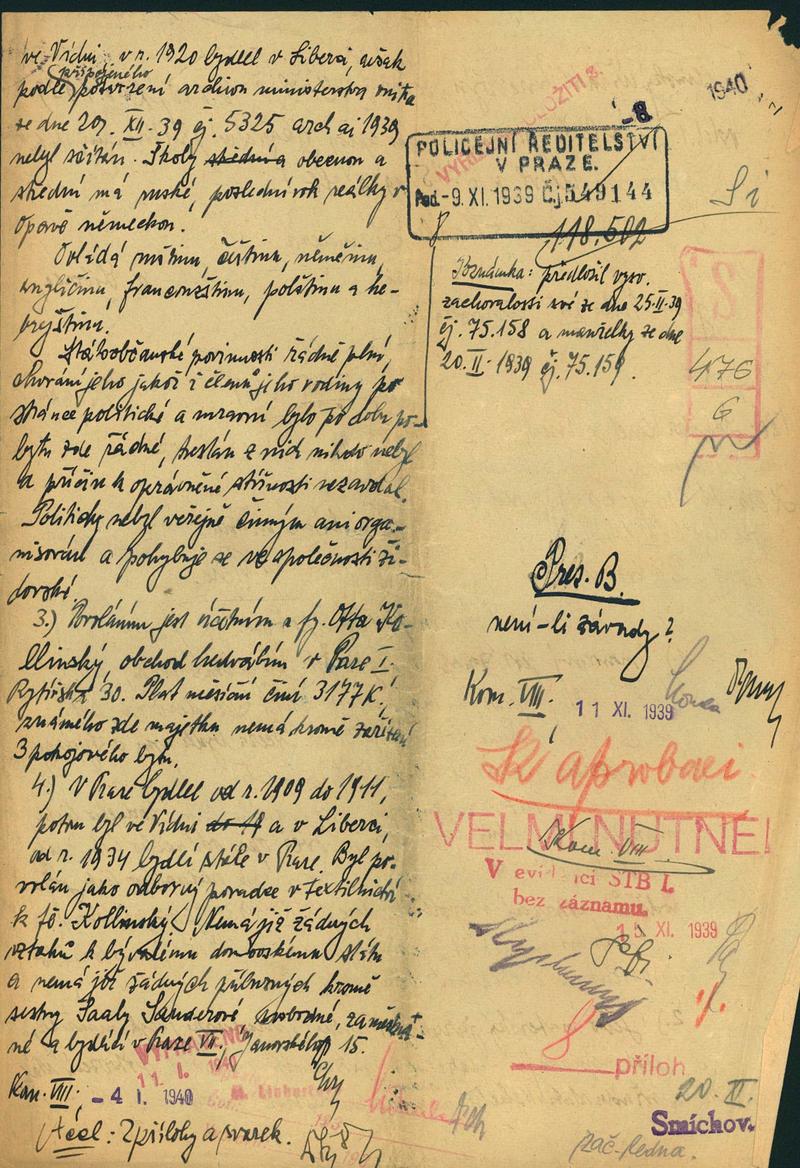 ve Vídni, v r. 1920 bydlel v Liberci, avšak
připojeného
podle potvrzení archivu ministerstva vnitra
ze dne 20. XII. 39 čj. 5325 arch ai 1939
nebyl sčítán. Školy středni a obecnou a
střední má ruské, poslední rok reálky v
Opavě německou.
Ovládá ruštinu, češtinu, němčinu,
angličinu, francouzštinu, polštinu a he-
brejštinu.
Státoobčanské povinnosti řádně plní,
chování jeho jakož i členů jeho rodiny po
stránce politické a mravní bylo po dobu po-
bytu zde řádné, trestán z nich nikdo nebyl
a příčin k oprávněné stížnosti nezavdal.
Politicky nebyl veřejně činným ani orga-
nisován a pohybuje se ve společnosti ži-
dovské.
3.) Povoláním jest účetním u fy. Otta Ko-
llinský, obchod hedvábím v Praze I.
Rytířská 30. Plat měsíční činí 3177 K,
známého zde majetku nemá kromě zařízení
3 pokojového bytu.
4.) V Praze bydlel od r. 1909 do 1911,
potom byl ve Vídni a v Liberci,
od r. 1934 bydlí stále v Praze. Byl po-
volán jako odborný poradce v textilnictví
k fě. Kollinský. Nemá již žádných
vztahů k bývalému domovskému státu
a nemá již žádných příbuzných kromě
sestry Saaly Sanderové svobodné, zaměstna-
né a bydlící v Praze VII, Janovského 15.
Kom. VIII.
- 4 I. 1940
11. I. 1940
Účel: 2 přílohy a svazek.
1940
-8
POLICEJNÍ ŘEDITELSTVÍ
V PRAZE.
Pod. -9. XI. 1939 Čj 549144
118.502
Si
Poznámka: předložil vysv.
zachovalosti své ze dne 25. II. 39
čj. 75.158 a manželky ze dne
20. II. 1939 čj. 75.159.
476
6
Pres. B.
není-li závady?
Kom. VIII.
11 XI. 1939
K aprobaci.
VELMI NUTNÉ!
Kom. VIII
V evidenci STB I.
bez záznamu.
15 XI. 1939
8
příloh
20. II.
Smíchov.